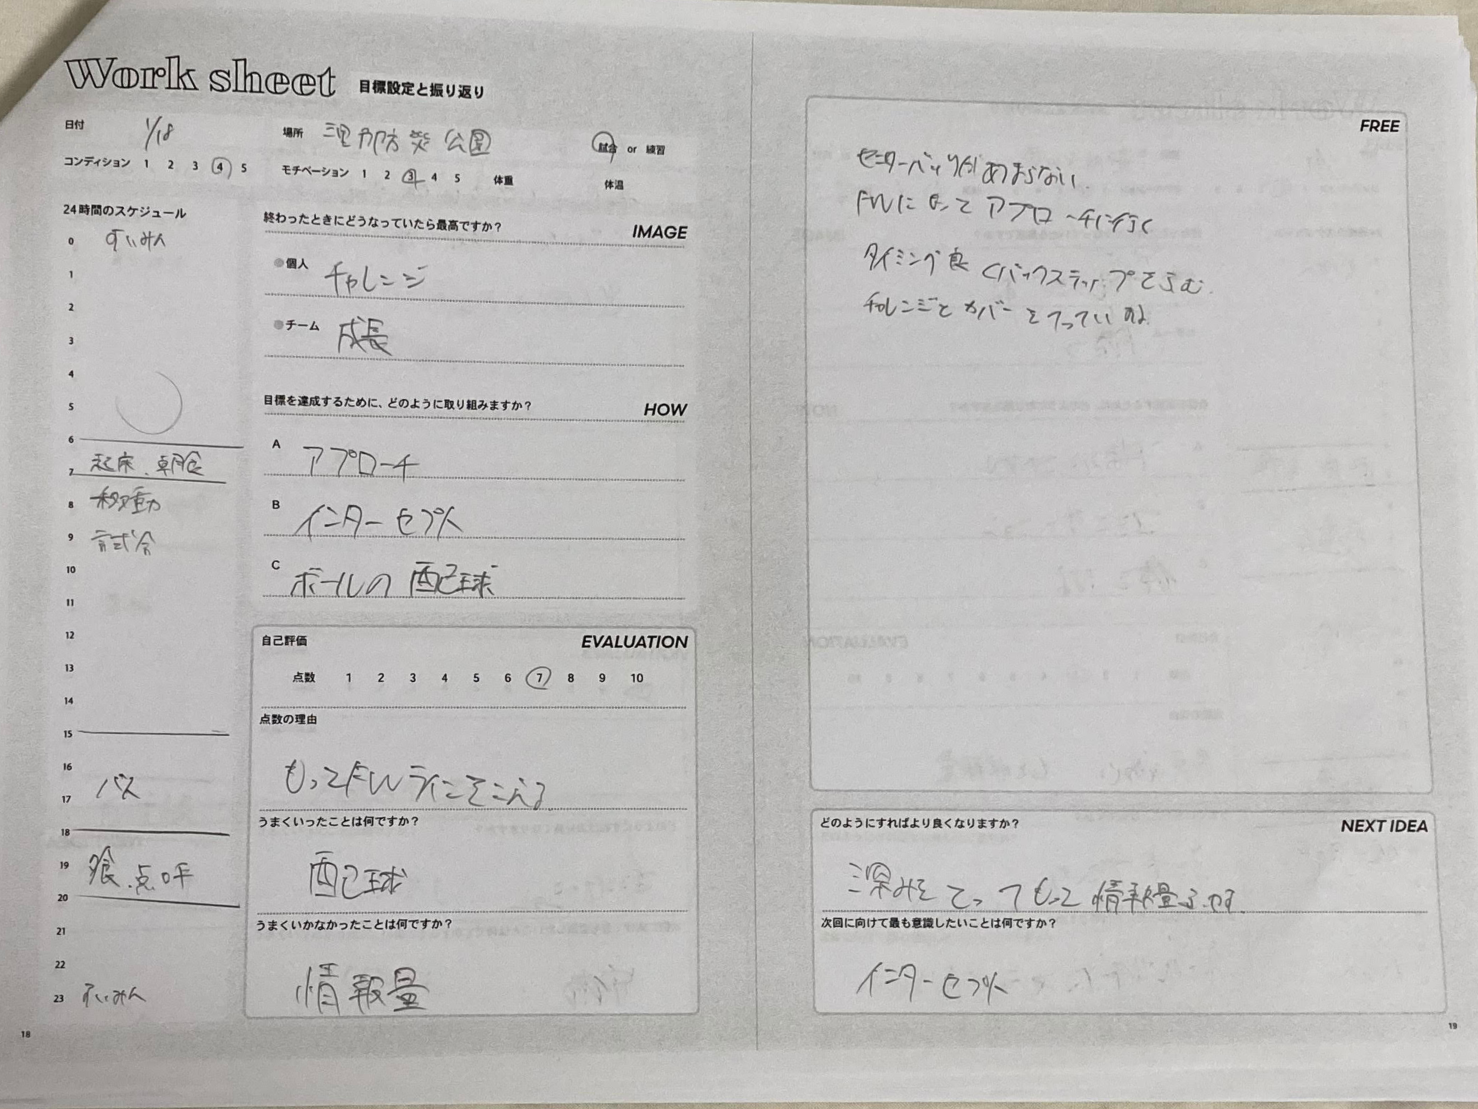 Work sheet 目標設定と振り返り
日付 1/18
場所 防災公園 試合 or 練習
コンディション 1 2 3 4 5
モチベーション 1 2 3 4 5 体重 体温
24時間のスケジュール
0 すいみん
1
2
3
4
5
6
7 起床、朝食
8 移動
9 試合
10
11
12
13
14
15
16
17 バス
18
19 点呼
20
21
22
23 すいみん
18
終わったときにどうなっていたら最高ですか? IMAGE
個人 チャレンジ
チーム 成長
目標を達成するために、どのように取り組みますか? HOW
A アプローチ
B インターセプト
C ボールの配球
自己評価 EVALUATION
点数 1 2 3 4 5 6 7 8 9 10
点数の理由
もっとFWライン
うまくいったことは何ですか?
配球
うまくいかなかったことは何ですか?
情報量
FREE
センターバックがあまらない
FWによってアプローチに行く
タイミング良くバックステップでふむ。
チャレンジとカバー
どのようにすればより良くなりますか? NEXT IDEA
深みをとってもっと情報量ふやす。
次回に向けて最も意識したいことは何ですか?
インターセプト
19